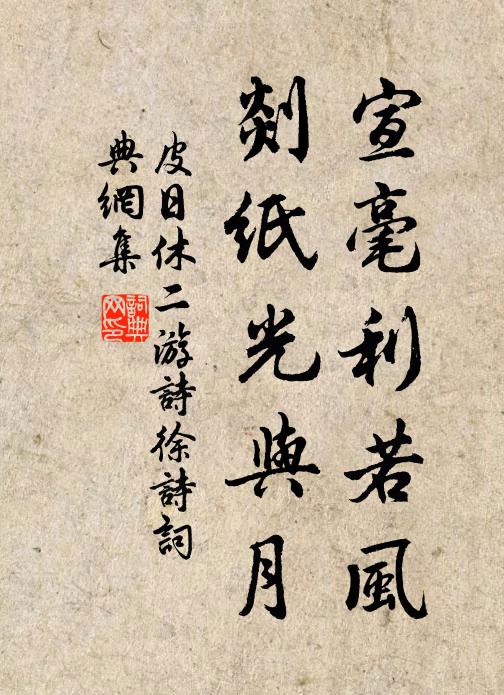 宣毫利若風
剡紙光與月
皮日休二游詩徐詩詞
典網集
詞典
网印